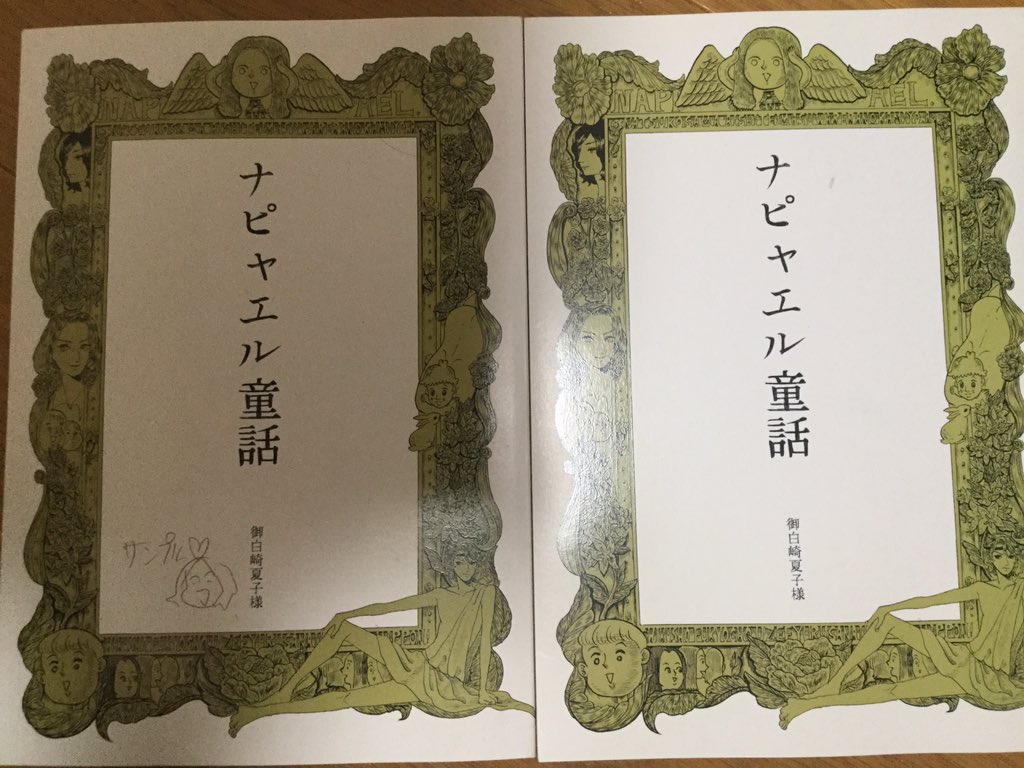 NAP
AEL.
ナピャエル童話
御白崎夏子様
サンプル♡
NAP
AEL.
ナピャエル童話
御白崎夏子様